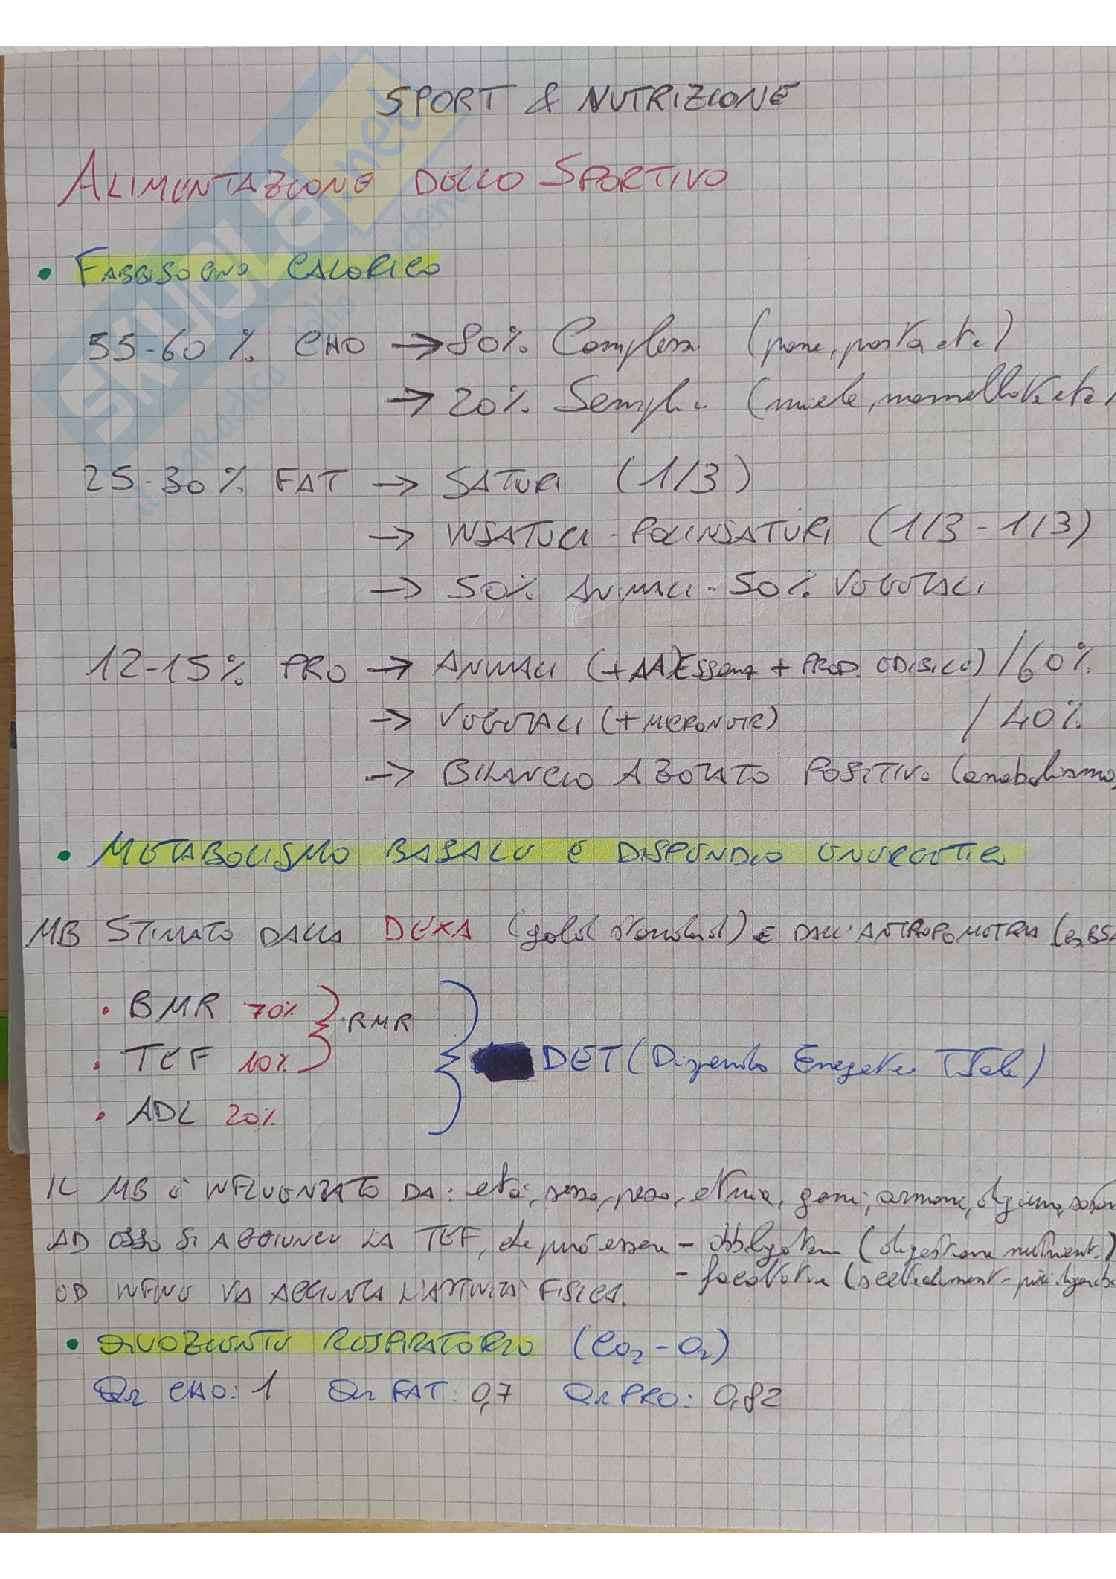 SPORT & NUTRIZIONE
ALIMENTAZIONE DELLO SPORTIVO
• FABBISOGNO CALORICO
55-60% CHO → 80% Complessi (pane, pasta etc)
→ 20% Semplici (miele, marmellata etc)
25-30% FAT → SATURI (1/3)
→ INSATURI - POLINSATURI (1/3 - 1/3)
→ 50% ANIMALI - 50% VEGETALI
12-15% PRO → ANIMALI (+AA ESSENZ + PROD. ) / 60%
→ VEGETALI (+ MICRONUTR) / 40%
→ BILANCIO AZOTATO POSITIVO (anabolismo
• METABOLISMO BASALE E DISPENDIO ENERGETICO
MB STIMATO DALLA DEXA (gold standard) E DALL'ANTROPOMETRIA (es BSA
• BMR 70% } RMR
• TEF 10%
• ADL 20%
} DET (Dispendio Energetico Totale)
IL MB è INFLUENZATO DA: età, sesso, peso, etnia, geni, ormoni, digiuno,
AD ESSO SI AGGIUNGE LA TEF, che può essere - obbligatoria (digestione nutrienti)
- facoltativa (
ED INFINE VA AGGIUNTA L'ATTIVITÀ FISICA.
• QUOZIENTE RESPIRATORIO (CO₂ - O₂)
QR CHO: 1 QR FAT: 0,7 QR PRO: 0,82
SKUOLA.net